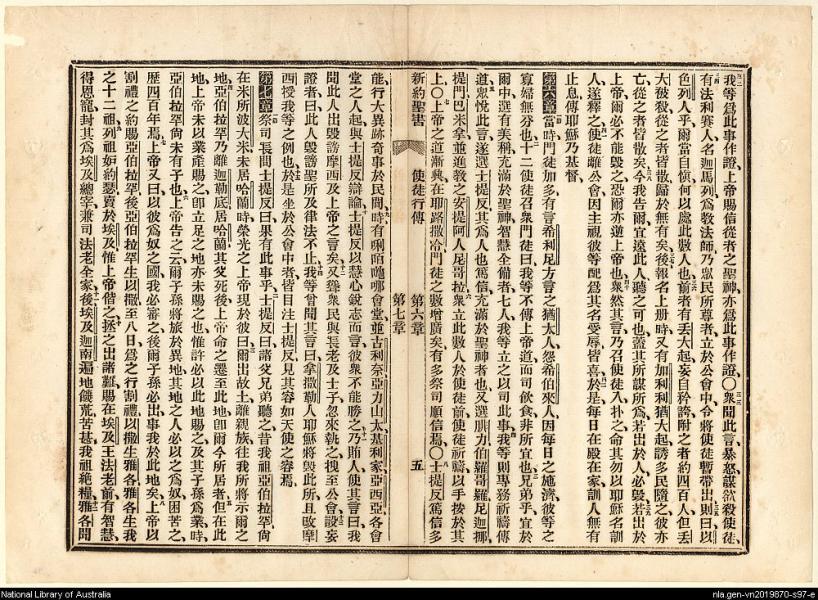 我等爲此事作證、上帝賜信從者之聖神、亦爲此事作證、○衆聞此言、暴怒、謀欲殺使徒、
有法利賽人名迦馬列、爲敎法師、乃衆民所尊者、立於公會中、令將使徒暫帶出、則曰、以
色列人乎、爾當自愼、何以處此數人也、前者有丟大起、妄自矜誇、附之者約四百人、但丟
大被殺、從之者皆散、歸於無有矣、後報名上册時、又有加利利猶大起、誘多民隨之、彼亦
亡、從之者皆散矣、今我告爾、宜遠此人、聽之可也、蓋其所謀所爲、若出於人、必毀、若出於
上帝、爾必不能毀之、恐爾亦逆上帝也、衆然其言、乃召使徒入、扑之、命其勿以耶穌名訓
人、遂釋之、使徒離公會、因主視彼等配爲其名受辱、皆喜、於是每日在殿在家、訓人無有
止息、傳耶穌乃基督、
第六章 當時門徒加多、有言希利尼方言之猶太人、怨希伯來人、因每日之施濟、彼等之
寡婦無分也、十二使徒召衆門徒曰、我等不傳上帝道、而司飲食、非所宜也、兄弟乎、宜於
爾中選有美稱、充滿於聖神智慧全備者七人、我等立之以司此事、我等則專務祈禱傳
道、衆悅此言、遂選士提反、其爲人也、篤信充滿於聖神者也、又選腓力伯羅哥羅尼迦挪、
提門巴米拿、並進敎之安提阿人尼哥拉、衆立此數人於使徒前、使徒祈禱、以手按於其
上、○上帝之道漸興、在耶路撒冷門徒之數增廣矣、有多祭司順信焉、○士提反篤信多
新約聖書 使徒行傳 第六章 第七章 五
能、行大異跡奇事於民間、時有唎咟㗝哪會堂、並古利奈、亞力山太、基利家、亞西亞、各會
堂之人起、與士提反辯論、士提反以慧心銳志而言、彼衆不能勝之、乃賄人使其言曰、我
聞此人出毀謗摩西及上帝之言矣、又聳衆民與長老及士子、忽來執之、拽至公會、設妄
證者曰、此人毀謗聖所及律法不止、我等曾聞其言曰、拿撒勒人耶穌將毀此所、且改摩
西授我等之例也、於是坐於公會中者、皆目注士提反、見其容如天使之容焉、
第七章 祭司長問士提反曰、果有此事乎、士提反曰、諸父兄弟聽之、昔我祖亞伯拉罕尚
在米所波大米、未居哈蘭時、榮光之上帝現於彼曰、爾出故土、離親族、往我所將示爾之
地、亞伯拉罕乃離迦勒底、居哈蘭、其父死後、上帝命之遷至此地、卽爾今所居者、但在此
地、上帝未以業產賜之、卽立足之地亦未賜之也、惟許必以此地賜之及其子孫爲業、時
亞伯拉罕尚未有子也、上帝告之云、爾子孫將旅於異地、其地之人必以之爲奴、困苦之、
歷四百年焉、上帝又曰、以彼爲奴之國、我必審之、後爾子孫必出、事我於此地矣、上帝以
割禮之約賜亞伯拉罕、後亞伯拉罕生以撒、至八日、爲之行割禮、以撒生雅各、雅各生我
之十二祖、列祖妒約瑟、賣於埃及、惟上帝偕之、拯之出諸難、賜在埃及王法老前、有智慧
得恩寵、封其爲埃及總宰、兼司法老全家、後埃及迦南遍地饑荒苦甚、我祖絶糧、雅各聞
National Library of Australia
nla.gen-vn2019870-s97-e